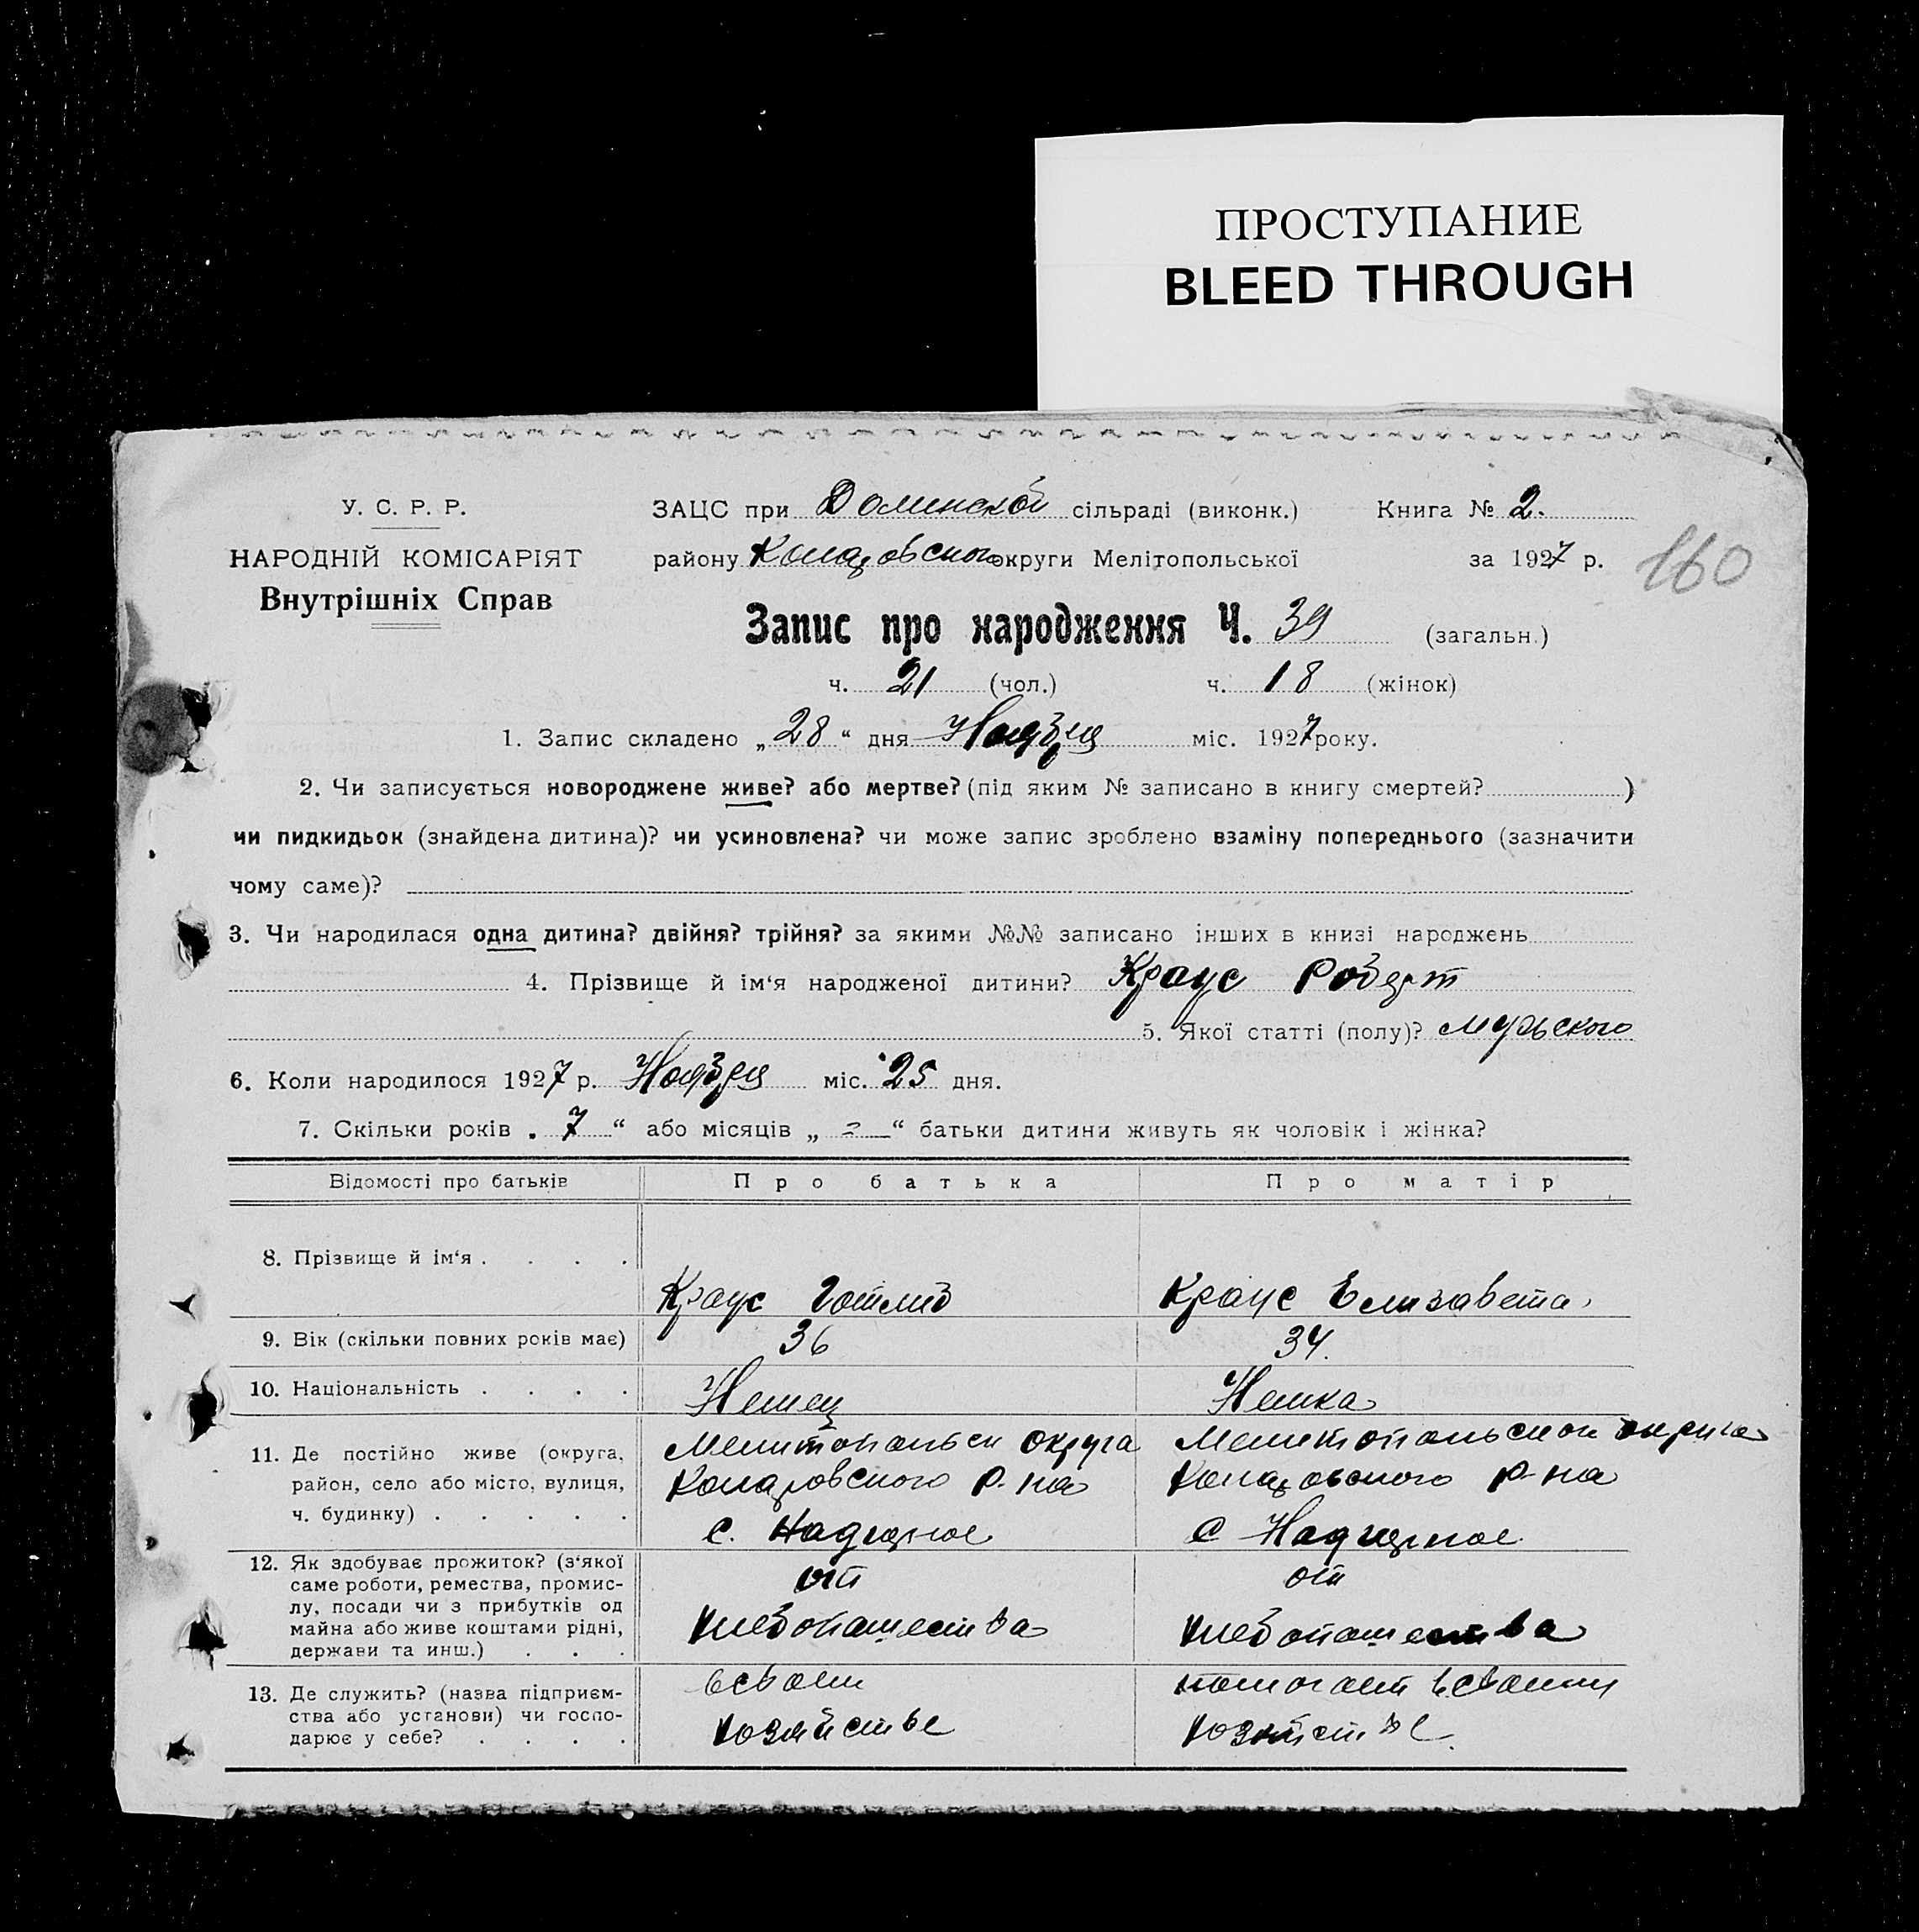 ПРОСТУПАНИЕ
BLEED THROUGH
У. С. Р. Р.
НАРОДНІЙ КОМІСАРІЯТ
Внутрішніх Справ
ЗАЦС при Долинской сільраді (виконк.) Книга № 2.
району округи Мелітопольської за 1927 р.
160
Запис про народження Ч. 39 (загальн.)
ч. 21 (чол.) ч. 18 (жінок)
1. Запис складено „28“ дня Ноября міс. 1927 року.
2. Чи записується новороджене живе? або мертве? (під яким № записано в книгу смертей? )
чи пидкидьок (знайдена дитина)? чи усиновлена? чи може запис зроблено взаміну попереднього (зазначити
чому саме)?
3. Чи народилася одна дитина? двійня? трійня? за якими №№ записано інших в книзі народжень
4. Прізвище й ім‘я народженої дитини? Краус Роберт
5. Якої статті (полу)? мужского
6. Коли народилося 1927 р. Ноября міс. 25 дня.
7. Скільки років „ 7 “ або місяців „ = “ батьки дитини живуть як чоловік і жінка?
Відомості про батьків Про батька Про матір
8. Прізвище й ім‘я . . . . Краус Готлиб Краус Елизавета
9. Вік (скільки повних років має) 36 34.
10. Національність . . . . Немец Немка
11. Де постійно живе (округа, район, село або місто, вулиця, ч. будинку) . . . . .
Мелитопольск округа
р-на
с. Надеждное
Мелитопольской округа
р-на
с Надеждное
12. Як здобуває прожиток? (з‘якої саме роботи, ремества, промислу, посади чи з прибутків од майна або живе коштами рідні, держави та инш.) . . .
от
хлебопашества
от
хлебопашества
13. Де служить? (назва підприємства або установи) чи господарює у себе? . . . .
в своем
хозяйстве
помогает в своем
хозяйстве